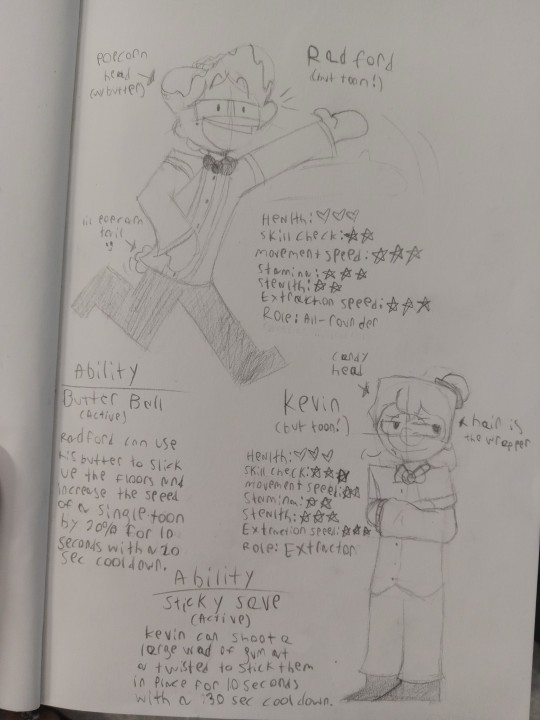 Radford
(but toon!)
POPCORN
head
(w/butter)
lil popcorn
tail
Health: ♡♡♡
skill check: ☆☆
movement speed: ☆☆☆
stamina: ☆☆☆
stealth: ☆☆
Extraction speed: ☆☆☆
Role: All-rounder
Ability
Butter Ball
(Active)
Radford can use
his butter to slick
up the floors and
increase the speed
of a single toon
by 20% for 10
seconds with a 20
sec cooldown.
candy
head
Kevin
(but toon!)
hair is
the wrapper
Health: ♡♡♡
skill check: ☆☆☆
movement speed: ☆☆
stamina: ☆☆
stealth: ☆☆☆
Extraction speed: ☆☆☆
Role: Extractor
Ability
Sticky save
(Active)
Kevin can shoot a
large wad of gum at
a twisted to stick them
in place for 10 seconds
with a 30 sec cooldown.